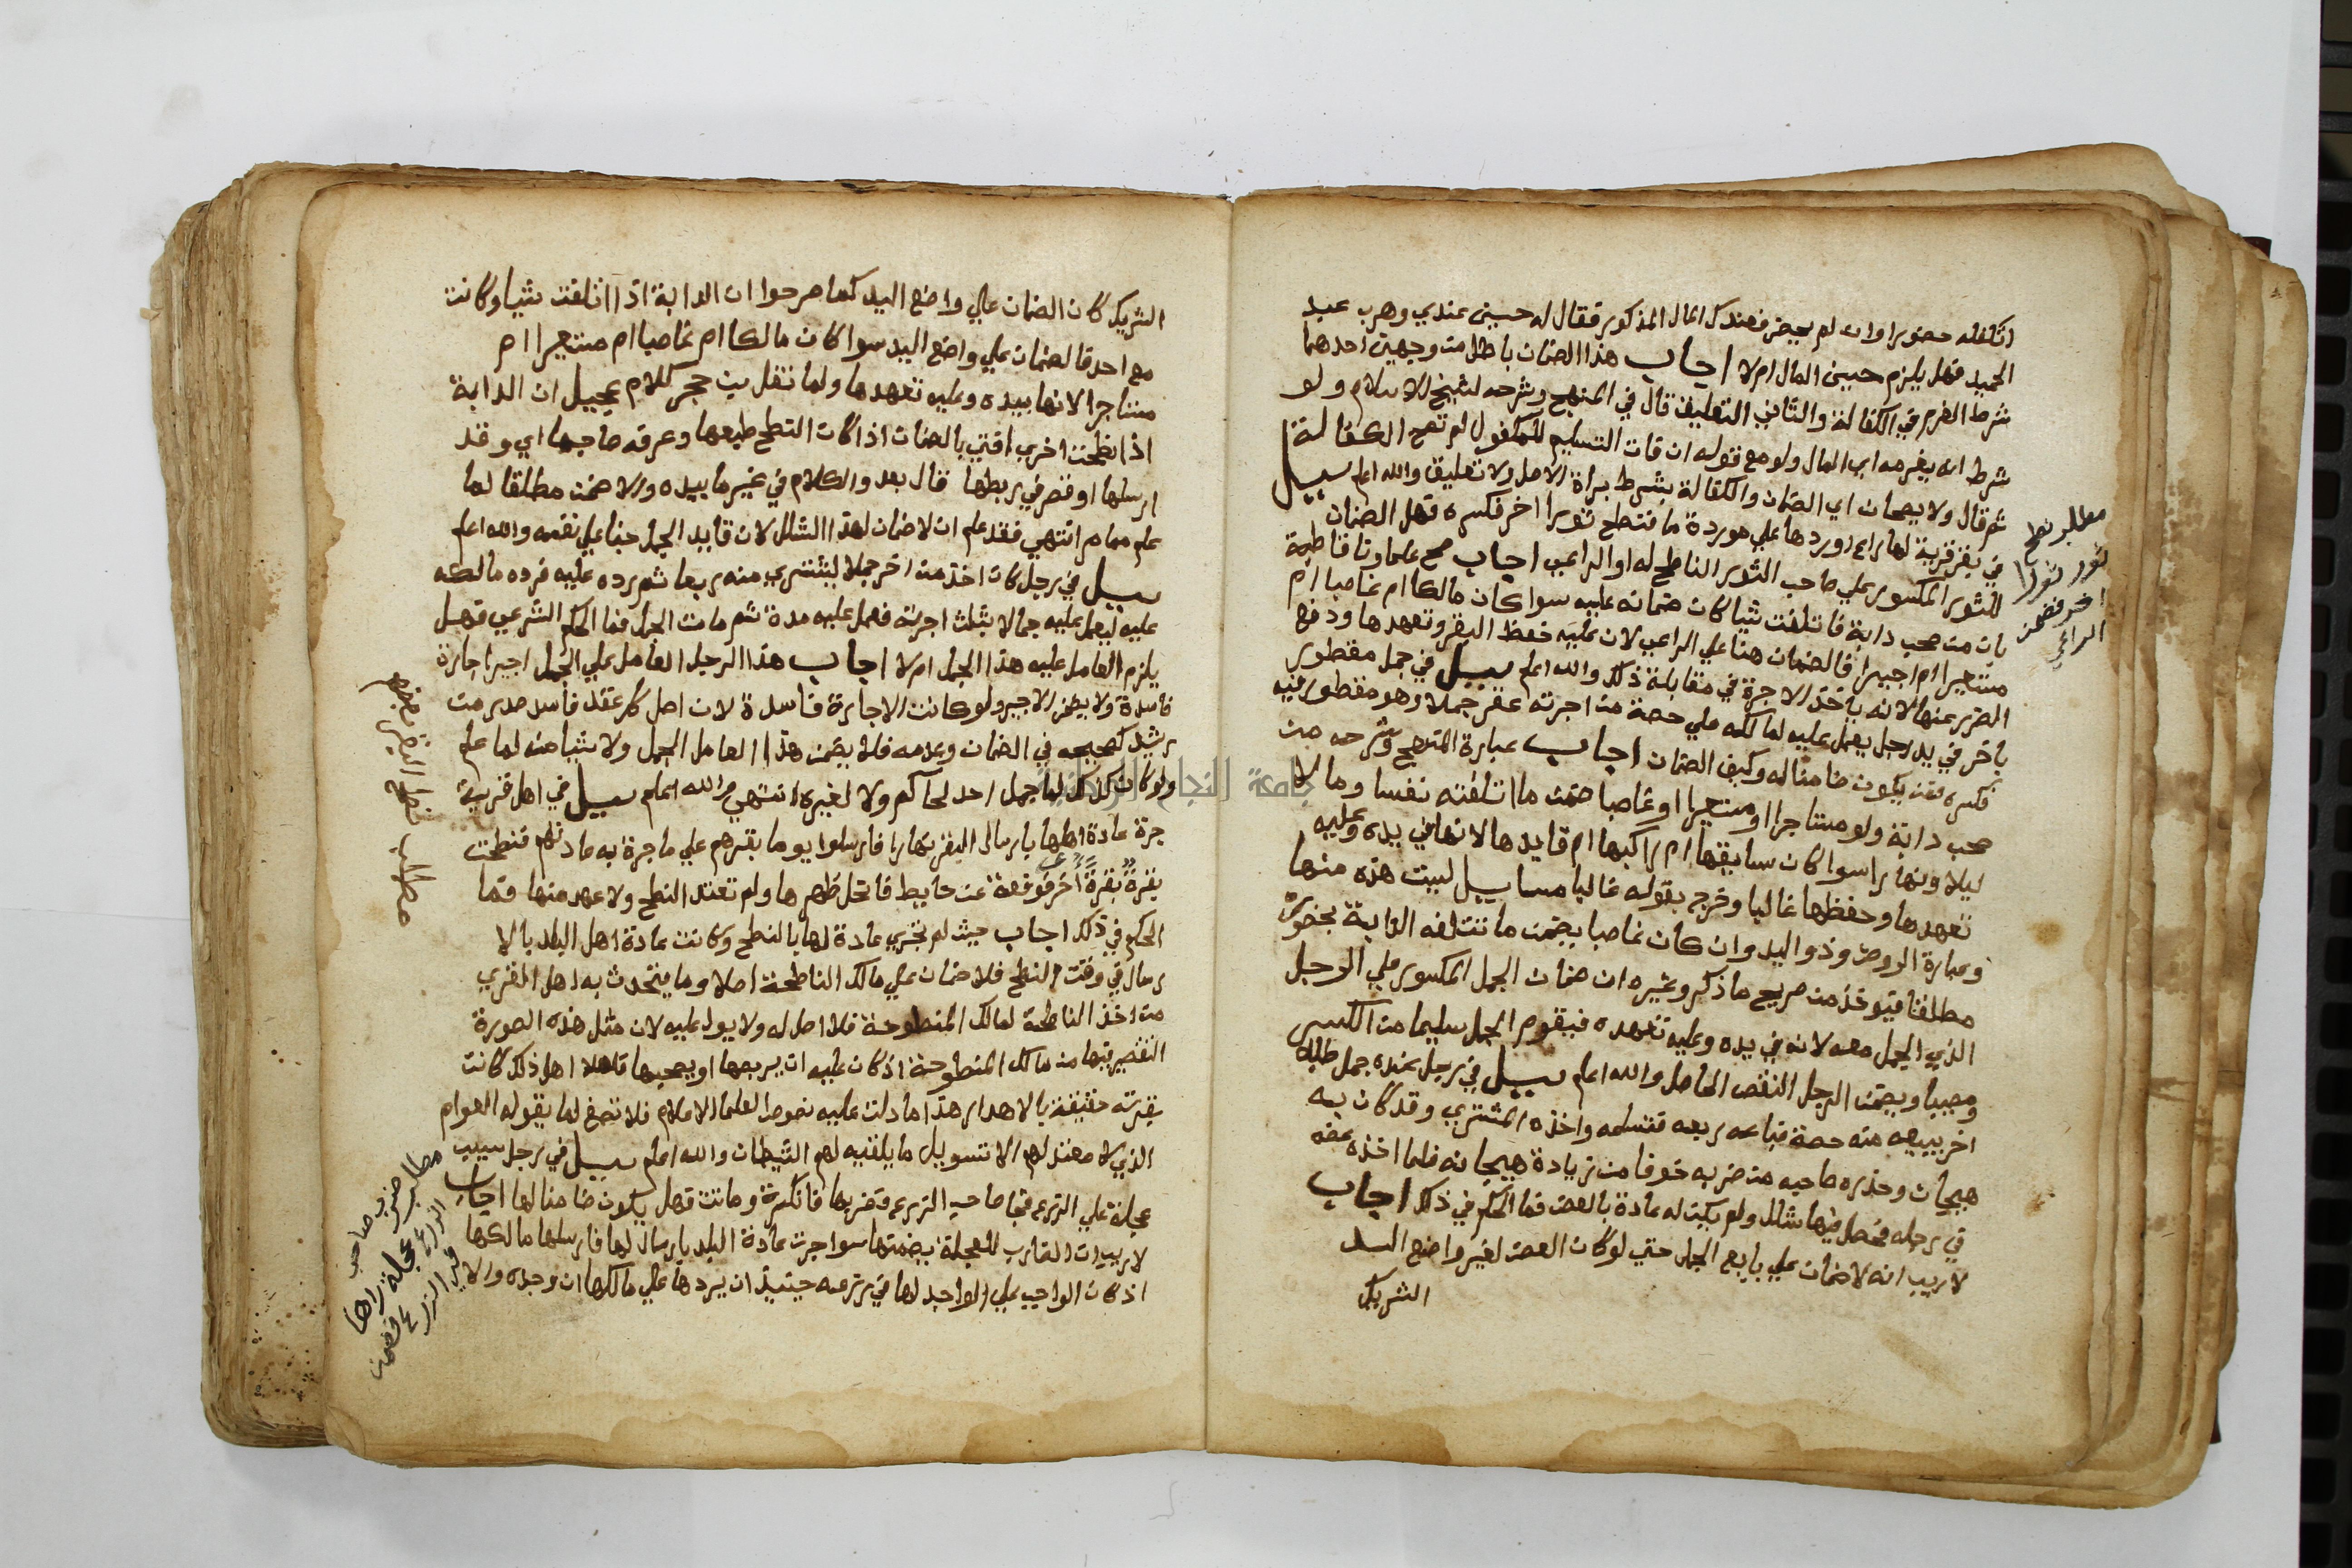 اتكفله حضورا وان لم يحضر فعندك المال المذكور فقال له حسين عندي وهرب عبد
الحميد فهل يلزم حسين المال ام لا اجاب هذا الضمان باطل من وجهين احدهما
شرط الغرم في الكفالة والثاني التعليق قال في المنهج وشرحه لشيخ الاسلام ولو
شرط انه يغرمه اي المال ولو مع قوله ان فات التسليم للمكفول لم تصح الكفالة
ثم قال ولا يصحان اي الضمان والكفالة بشرط براة الاصل ولا تعليق والله اعلم سيل
في بقر قرية لها راع اوردها علي موردة ما فنطح ثورا اخر فكسره فهل الضمان
للثور المكسور علي صاحب الثور الناطح له او الراعي اجاب صح علماونا قاطبة
بان من صحب دابة فاتلفت شيا كان ضمانه عليه سوا كان مالكا ام غاصبا ام
مستعيرا ام اجيرا فالضمان هنا علي الراعي لان عليه حفظ البقر وتعهدها ودفع
الضرر عنها لانه ياخذ الاجرة في مقابلة ذلك والله اعلم سيل في جمل مقطور
باخر في يد رجل يعمل عليه لمالكه علي حصة من اجرته عقر جملا وهو مقطور فيه
فكسره فمن يكون ضامنا له وكيف الضمان اجاب عبارة المنهج وشرحه من
صحب دابة ولو مستاجرا او مستعيرا او غاصبا ضمن ما اتلفته نفسا ومالا
ليلا ونهارا سوا كان سايقها ام راكبها ام قايدها لانها في يده وعليه
تعهدها وحفظها غالبا وخرج بقوله غالبا مسايل ليست هذه منها
وعبارة الروض وذو اليد وان كان غاصبا يضمن ما تتلفه الدابة بحضوره
مطلقا فيوخذ من صريح ما ذكر وغيره ان ضمان الجمل المكسور علي الرجل
الذي الجمل معه لانه في يده وعليه تعهده فيقوم الجمل سليما من الكسر
ومعيبا ويضمن الرجل النقص الحاصل والله اعلم سيل في رجل عنده جمل طلبه
اخر يبيعه منه حصة فباعه ربعه فتسلمه واخذه المشتري وقد كان به
هيجان وحذره صاحبه من ضربه خوفا من زيادة هيجانه فلما اخذه عضه
في رجله فحصل فيها شلل ولم يكن له عادة بالعض فما الحكم في ذلك اجاب
لا ريب انه لا ضمان علي بايع الجمل حتي لو كان العض لغير واضع اليد
الشريك
مطلب نطح
ثور ثورا
اخر فضمن
الراعي
الشريك كان الضمان علي واضع اليد كما صرحوا ان الدابة اذا اتلفت شيا وكانت
مع احد فالضمان علي واضع اليد سوا كان مالكا ام غاصبا ام مستعيرا ام
مستاجرا لانها بيده وعليه تعهدها ولما نقل بن حجر كلام عجيل ان الدابة
اذا نطحت اخري افتي بالضمان اذا كان النطح طبعها وعرفه صاحبها اي وقد
ارسلها او قصر في ربطها قال بعد والكلام في غير ما بيده والا ضمن مطلقا لما
علم مما مر انتهي فقد علم ان لا ضمان لهذا الشلل لان قايد الجمل جنا علي نفسه والله اعلم
سيل في رجل كان اخذ من اخر جملا ليشتري منه ربعا ثم رده عليه فرده مالكه
عليه ليعمل عليه جمالا بثلث اجرته فعمل عليه مدة ثم مات الجمل فما الحكم الشرعي فهل
يلزم العامل عليه هذا الجمل ام لا اجاب هذا الرجل العامل علي الجمل اجير اجارة
فاسدة ولا يضمن الاجير ولو كانت الاجارة فاسدة لان اصل كل عقد فاسد صدر من
رشيد كصحيحه في الضمان وعدمه فلا يضمن هذا العامل الجمل ولا شيا منه لما علم
ولو كان كذلك لما جمل احد لحاكم ولا لغيره انتهي والله اعلم سيل في اهل قرية
جرة عادة اهلها بارسال البقر نهارا فارسلوا يوما بقرهم علي ما جرة به عادتهم فنطحت
بقرةً بقرةً اخر فوقعة عن حايط فانحل ظهرها ولم تعتد النطح ولا عهد منها فما
الحكم في ذلك اجاب حيث لم تجري عادة لها بالنطح وكانت عادة اهل البلد بالا
رسال في وقت النطح فلا ضمان علي مالك الناطحة اصلا وما يتحدث به اهل القري
من اخذ الناطحة لمالك المنطوحة فلا اصل له ولا يعول عليه لان مثل هذه الصورة
التقصير فيها من مالك المنطوحة اذ كان عليه ان يربطها او يصحبها فاهلا اهل ذلك كانت
بقرته حقيقة بالاهدار هذا ما دلت عليه نصوص العلما الاعلام فلا تصغ لما يقوله العوام
الذي لا معتد لهم الا تسويل ما يلقيه لهم الشيطان والله اعلم سيل في رجل سيب
عجلة علي الزرع فجا صاحب الزرع فضربها فانكسرة وماتت فهل يكون ضامنا لها اجاب
لا ريب ان الضارب للعجلة يضمنها سوا جرت عادة البلد بارسال لها فارسلها مالكها
اذ كان الواجب علي الواجد لها في زرعه حينيذ ان يردها علي مالكها ان وجده والا
مطلب نطح البقر بعضهم
مطلب ضرب صاحب
الزرع عجلة راها
في الزرع فضمن
جامعة النجاح الوطنية